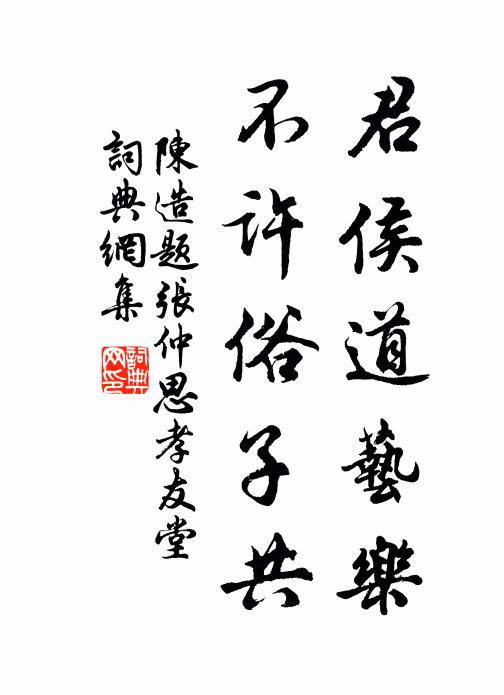 君侯道藝樂
不許俗子共
陳造題張仲思孝友堂
詞典網集
詞典网印